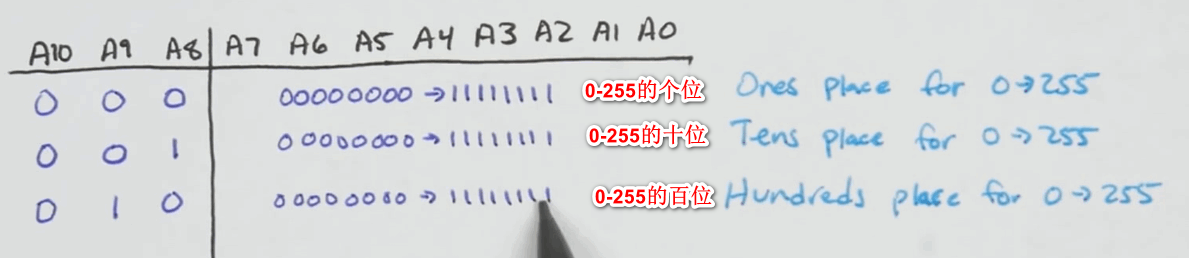 A10 A9 A8 A7 A6 A5 A4 A3 A2 A1 A0
0 0 0 00000000→11111111 0-255的个位 Ones place for 0→255
0 0 1 00000000→11111111 0-255的十位 Tens place for 0→255
0 1 0 00000000→11111111 0-255的百位 Hundreds place for 0→255